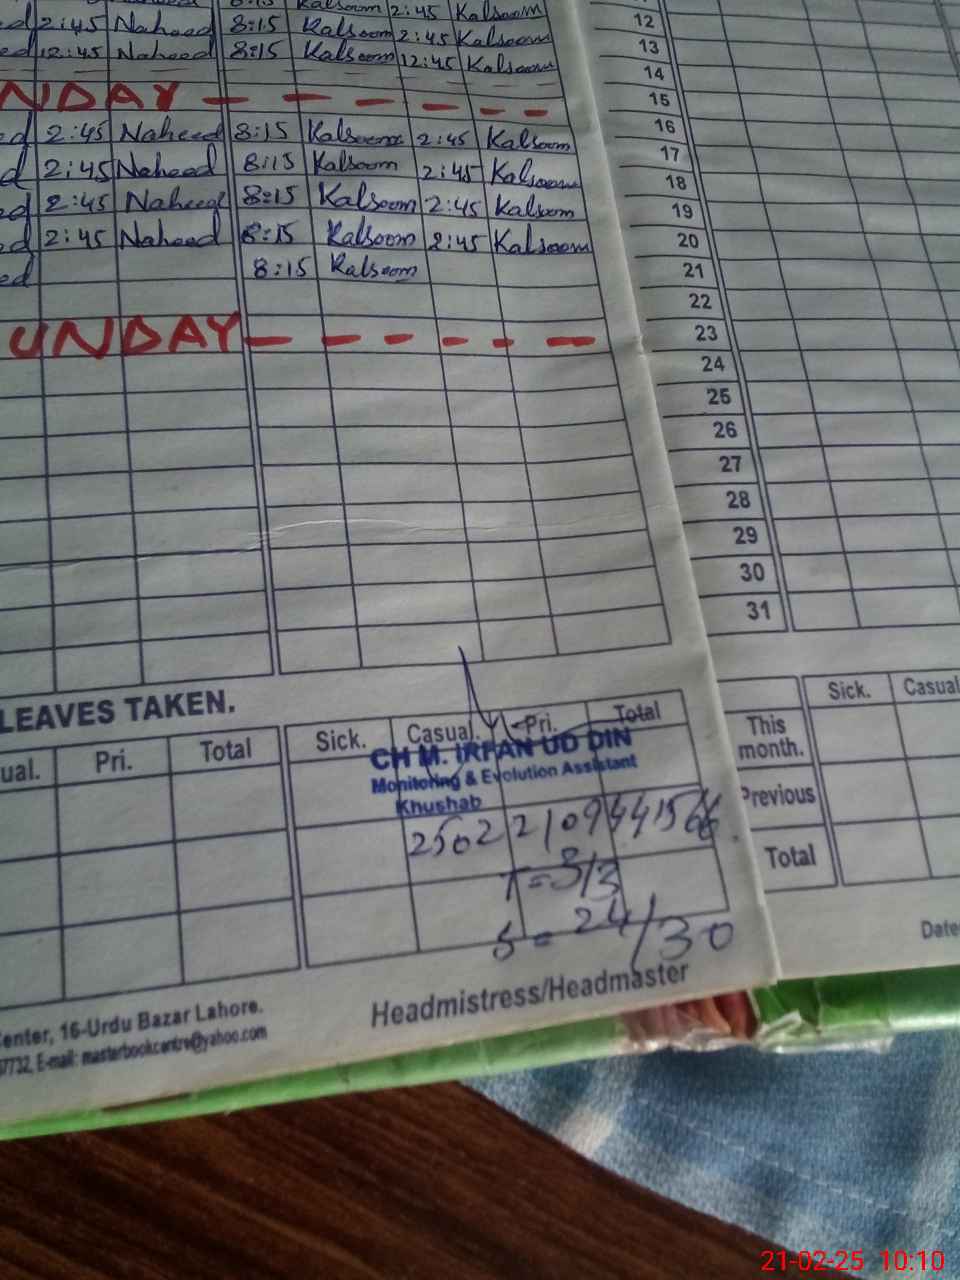 8:15 Kalsoom 2:45 Kalsoom
ed 2:45 Naheed 8:15 Kalsoom 2:45 Kalsoom
ed 12:45 Naheed 8:15 Kalsoom 12:45 Kalsoom
NDAY
ed 2:45 Naheed 8:15 Kalsoom 2:45 Kalsoom
d 2:45 Naheed 8:15 Kalsoom 2:45 Kalsoom
ed 2:45 Naheed 8:15 Kalsoom 2:45 Kalsoom
ed 2:45 Naheed 8:15 Kalsoom 2:45 Kalsoom
ed 8:15 Kalsoom
UNDAY
LEAVES TAKEN.
ual. Pri. Total Sick. Casual. Pri. Total
CH M. IRFAN UD DIN
Monitoring & Evolution Assistant
Khushab
T = 3/3
S = 24/30
Headmistress/Headmaster
Center, 16-Urdu Bazar Lahore.
7732, E-mail: masterbookcentre@yahoo.com
12
13
14
15
16
17
18
19
20
21
22
23
24
25
26
27
28
29
30
31
Sick. Casual
This
month.
Previous
Total
Date
21-02-25 10:10